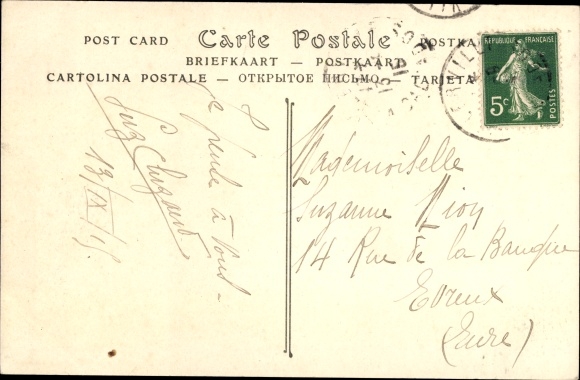 POST CARD Carte Postale POSTKA
BRIEFKAART - POSTKAART
CARTOLINA POSTALE - ОТКРЫТОЕ ПИСЬМО - TARJETA
REPUBLIQUE FRANÇAISE
5c
POSTES
Je pense à vous -
13/IX/15
Mademoiselle
Suzanne
14 Rue de la Banque
Evreux
(Eure)